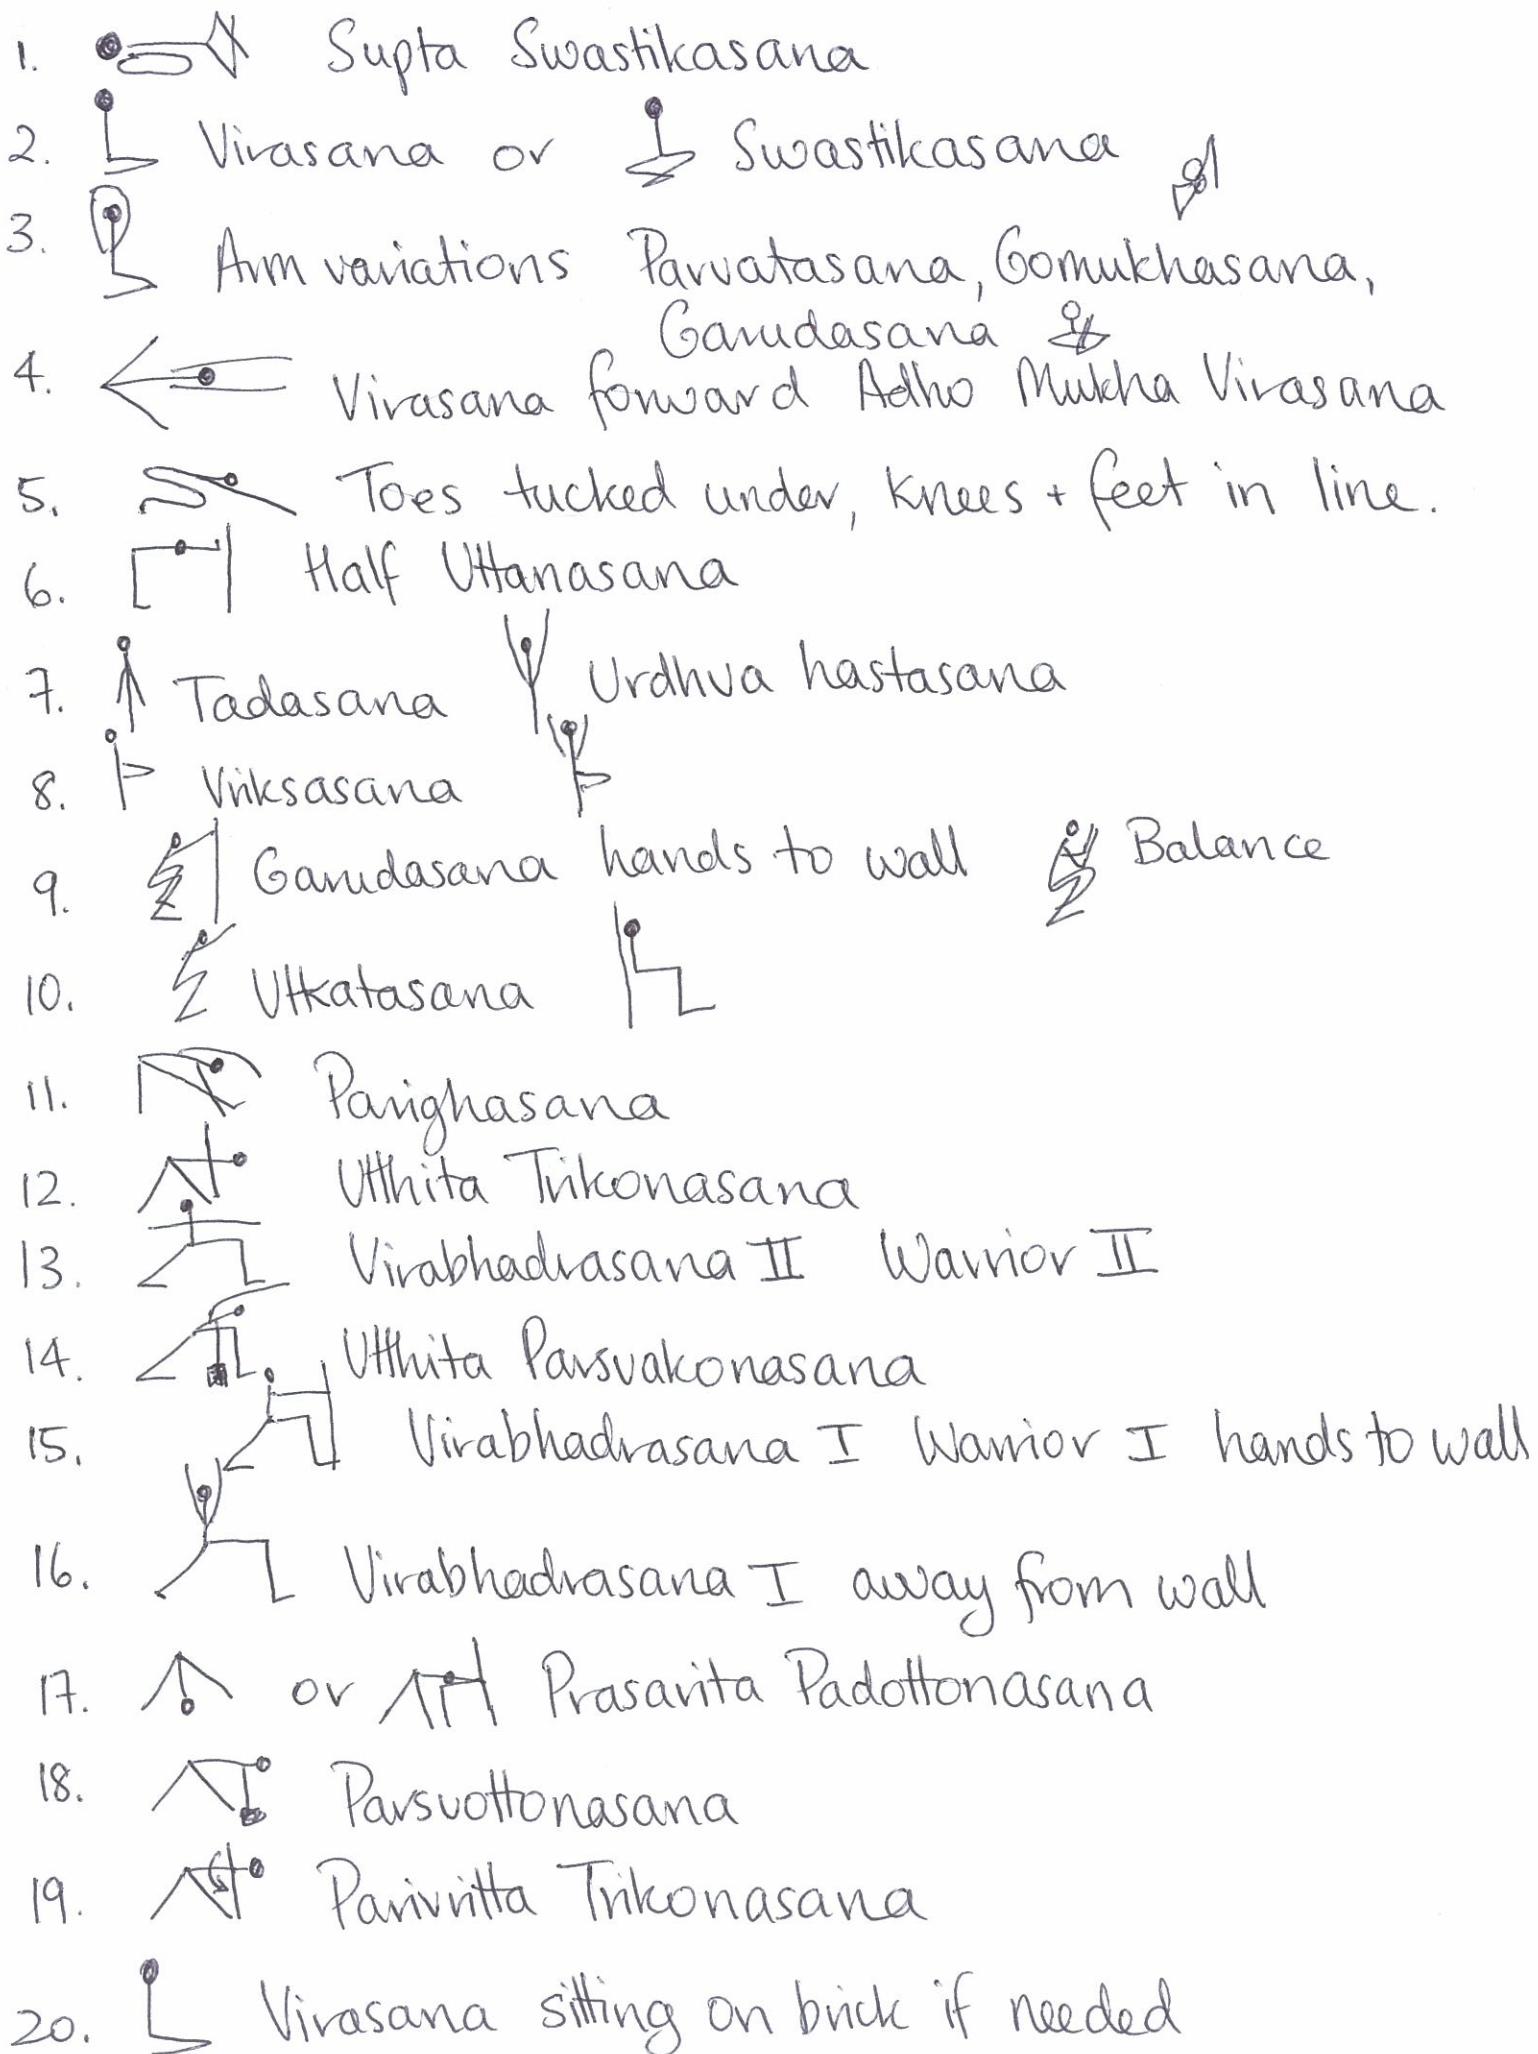 1. Supta Swastikasana
2. Virasana or Swastikasana
3. Arm variations Parvatasana, Gomukhasana,
Garudasana
4. Virasana forward Adho Mukha Virasana
5. Toes tucked under, Knees + feet in line.
6. Half Uttanasana
7. Tadasana Urdhva hastasana
8. Vriksasana
9. Garudasana hands to wall Balance
10. Utkatasana
11. Parighasana
12. Utthita Trikonasana
13. Virabhadrasana II Warrior II
14. Utthita Parsvakonasana
15. Virabhadrasana I Warrior I hands to wall
16. Virabhadrasana I away from wall
17. or Prasarita Padottonasana
18. Parsvottonasana
19. Parivritta Trikonasana
20. Virasana sitting on brick if needed